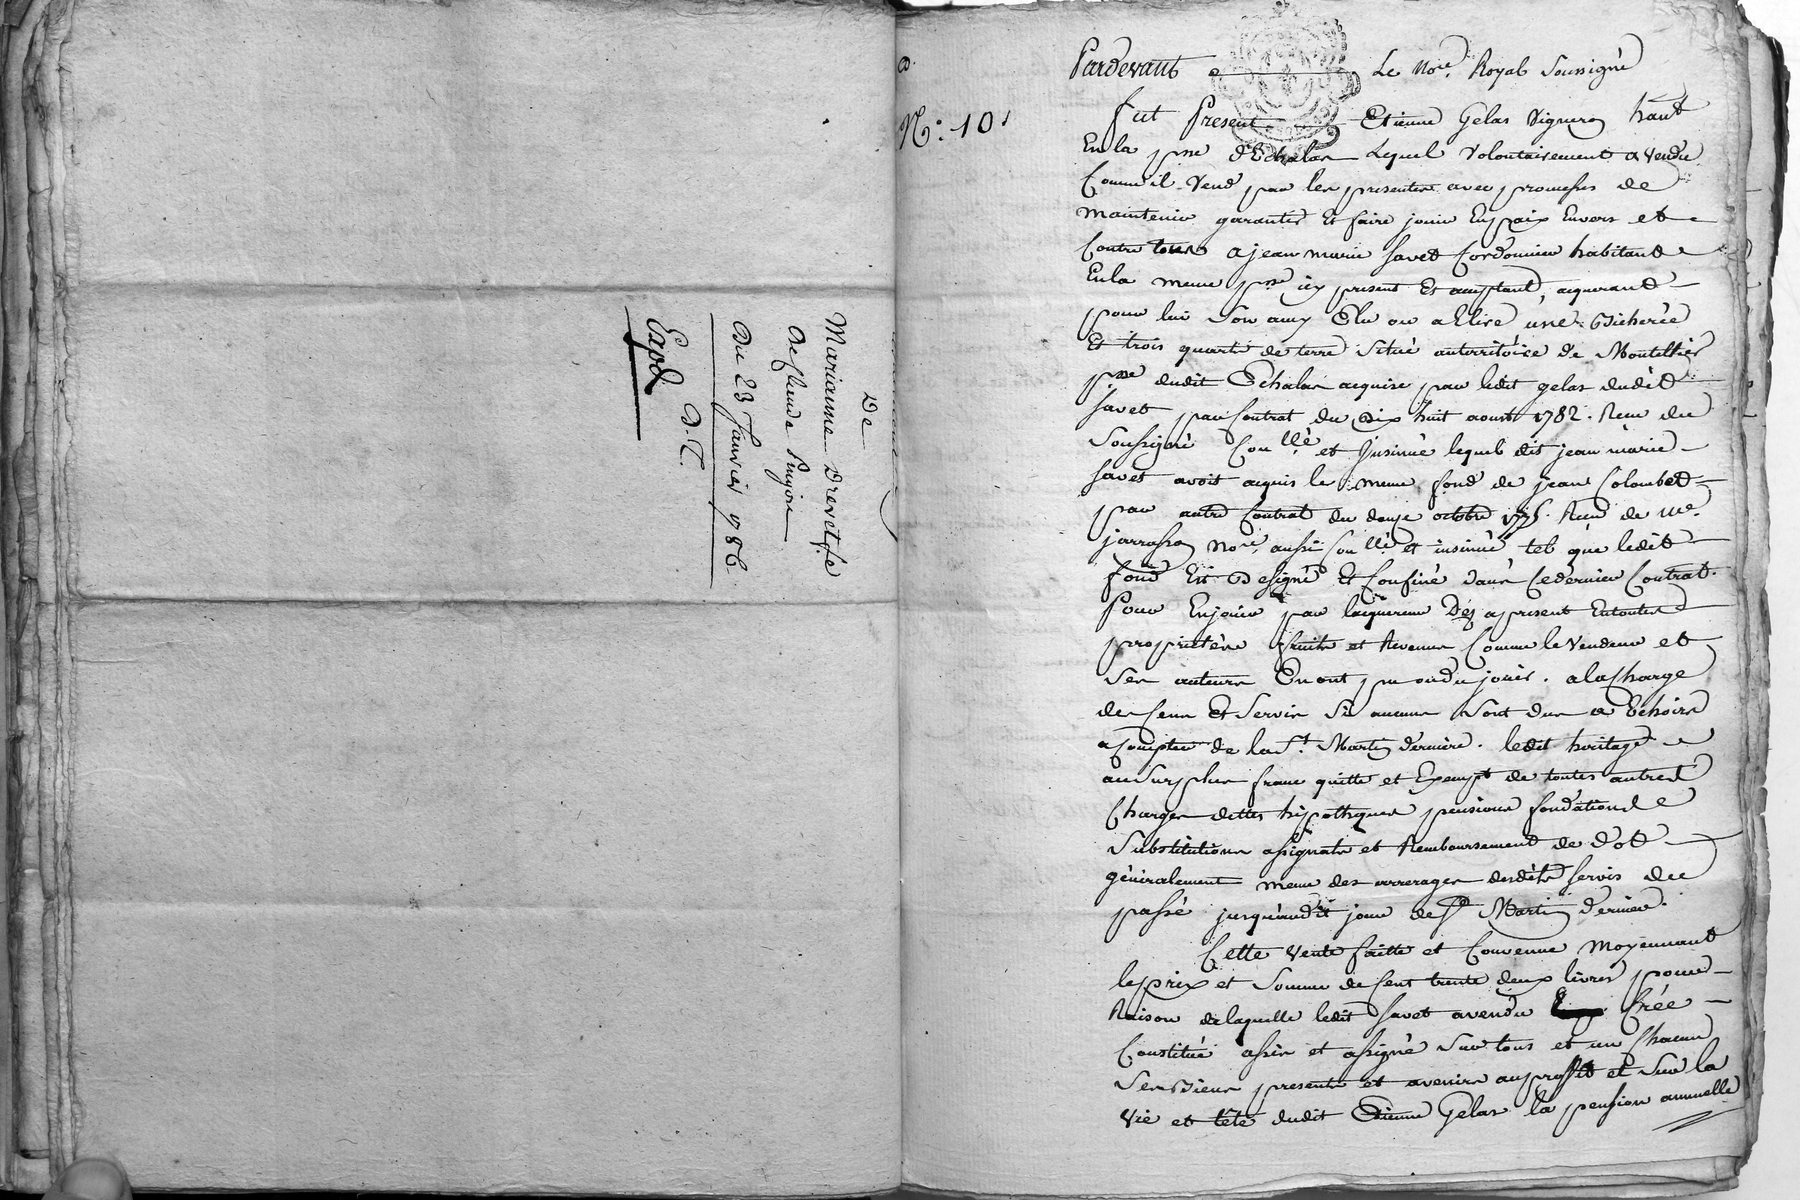 De
Marianne Drevet fe
De fleurde Pinjon
Du 23 Janvier 1786
D.C.
Expd
N.° 10
Pardevant Le Nore. Royal Soussigné
fut Present Etienne Gelas Vigneron hant
En la psse d'Echalas Lequel Volontairement a vendu
Comme il Vend par les presentes avec promesses de
maintenir garantir Et faire jouir En paix Envers et
Contre tous a jean marie favet Cordonnier habitant
En la meme psse icy present Et acceptant, acquerant
pour luy Son amy Elu ou a Elire une Bicherée
Et trois quarts de terre Situé au territoire de Montellier
psse dudit Echalas acquise par ledit gelas dudit
favet par Contrat du dix huit aoust 1782. Recu du
Soussigné Con.llé et Insinué lequel dit jean marie
favet avoit acquis le meme fond de jean Colombet
par autre Contrat du douze octobre 1775. Recu de Me.
jarrasson Nore. aussi Con.llé et insinué tel que ledit
fond Est Designé Et Confiné dans Ce dernier Contrat.
Pour En jouir par l'acquereur Dés a present En toutes
proprietés fruits et Revenus Comme le Vendeur et
Ses auteurs En ont pu ou du jouir. a la Charge
des Cens Et Servis Si aucuns Sont dus a Echoir
a Compter de la St. Martin derniere. ledit heritage
au Surplus franc quitte et Exempt de toutes autres
Charges dettes hipotheques pensions fondations
Substitutions assignats et Remboursement de dot
généralement meme des arrerages desdits servis du
passé jusqu'audit jour de St Martin dernier.
Cette Vente faitte et Convenue Moyennant
le prix et Somme de Cent trente deux livres pour
Raison de laquelle ledit favet a vendu Créé
Constitué assis et assigné Sur tous et un Chacun
Ses Biens presents et avenirs au proffit et Sur la
Vie et tête dudit Etienne Gelas la pension annuelle